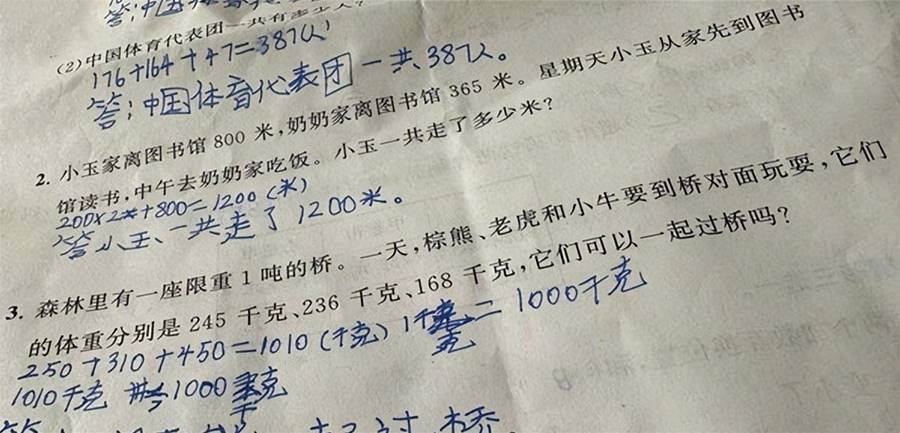 (2)中国体育代表团一共有多少人?
176+164+47=387(人)
答:中国体育代表团一共387人。
2. 小玉家离图书馆 800 米,奶奶家离图书馆 365 米。星期天小玉从家先到图书
馆读书,中午去奶奶家吃饭。小玉一共走了多少米?
200×2+800=1200(米)
答小玉、一共走了1200米。
3. 森林里有一座限重 1 吨的桥。一天,棕熊、老虎和小牛要到桥对面玩耍,它们
的体重分别是 245 千克、236 千克、168 千克,它们可以一起过桥吗?
250+310+450=1010(千克) 1 =1000千克
1010千克 1000千克
过桥。